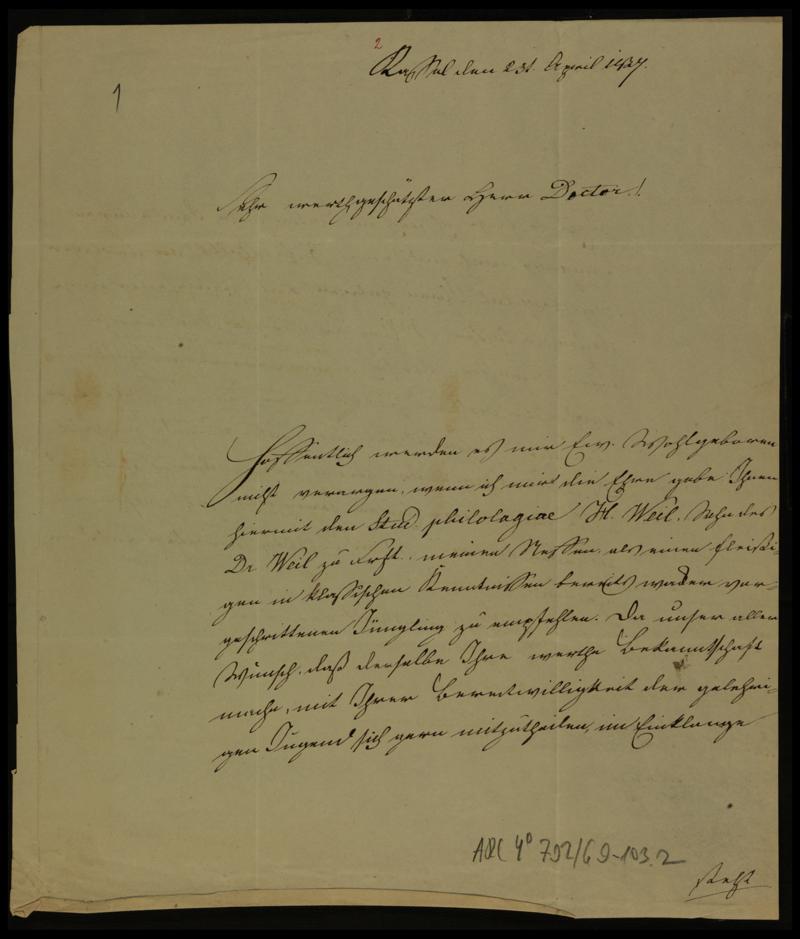 2
Kassel den 23t. April 1837.
1
Sehr werthgeschätzter Herr Doctor!
Hoffentlich werden es mir Ew. Wohlgeboren
nicht verargen, wenn ich mir die Ehre gebe Ihnen
hiermit den Stud. philologiae H. Weil, Sohn des
Dr Weil zu Frft. meinen Neffen, als einen fleißi-
gen in klassischen Kenntnissen bereits wacker vor-
geschrittenen Jüngling zu empfehlen. Da unser aller
Wunsch, daß derselbe Ihre werthe Bekanntschaft
mache, mit Ihrer Bereitwilligkeit der gelehri-
gen Jugend sich gern mitzutheilen, im Einklange
ARC 4° 792/G 9-103.2
steht